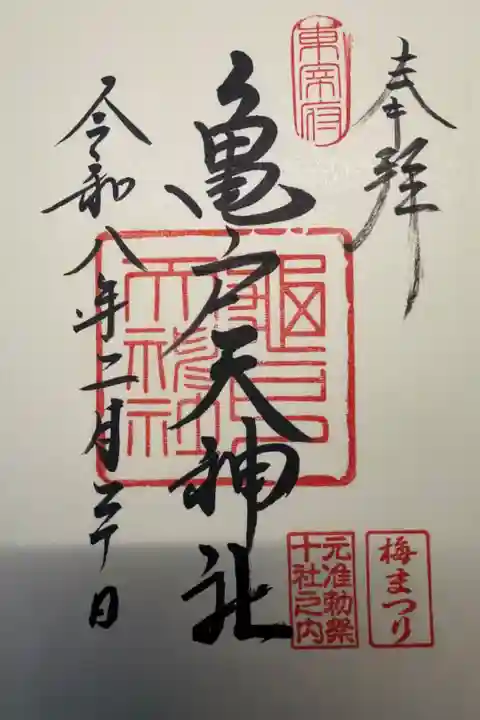 奉拝
東宰府
亀戸天神社
亀戸天神社
令和八年二月二十日
梅まつり
元准勅祭
十社之内